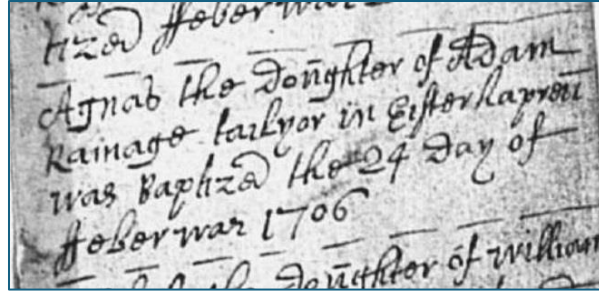 tized ffeberwar
Agnas the doughter of Adam
Rainage tailyor in Eister kapreu
was Baptized the 24 day of
ffeberwar 1706
the doughter of william